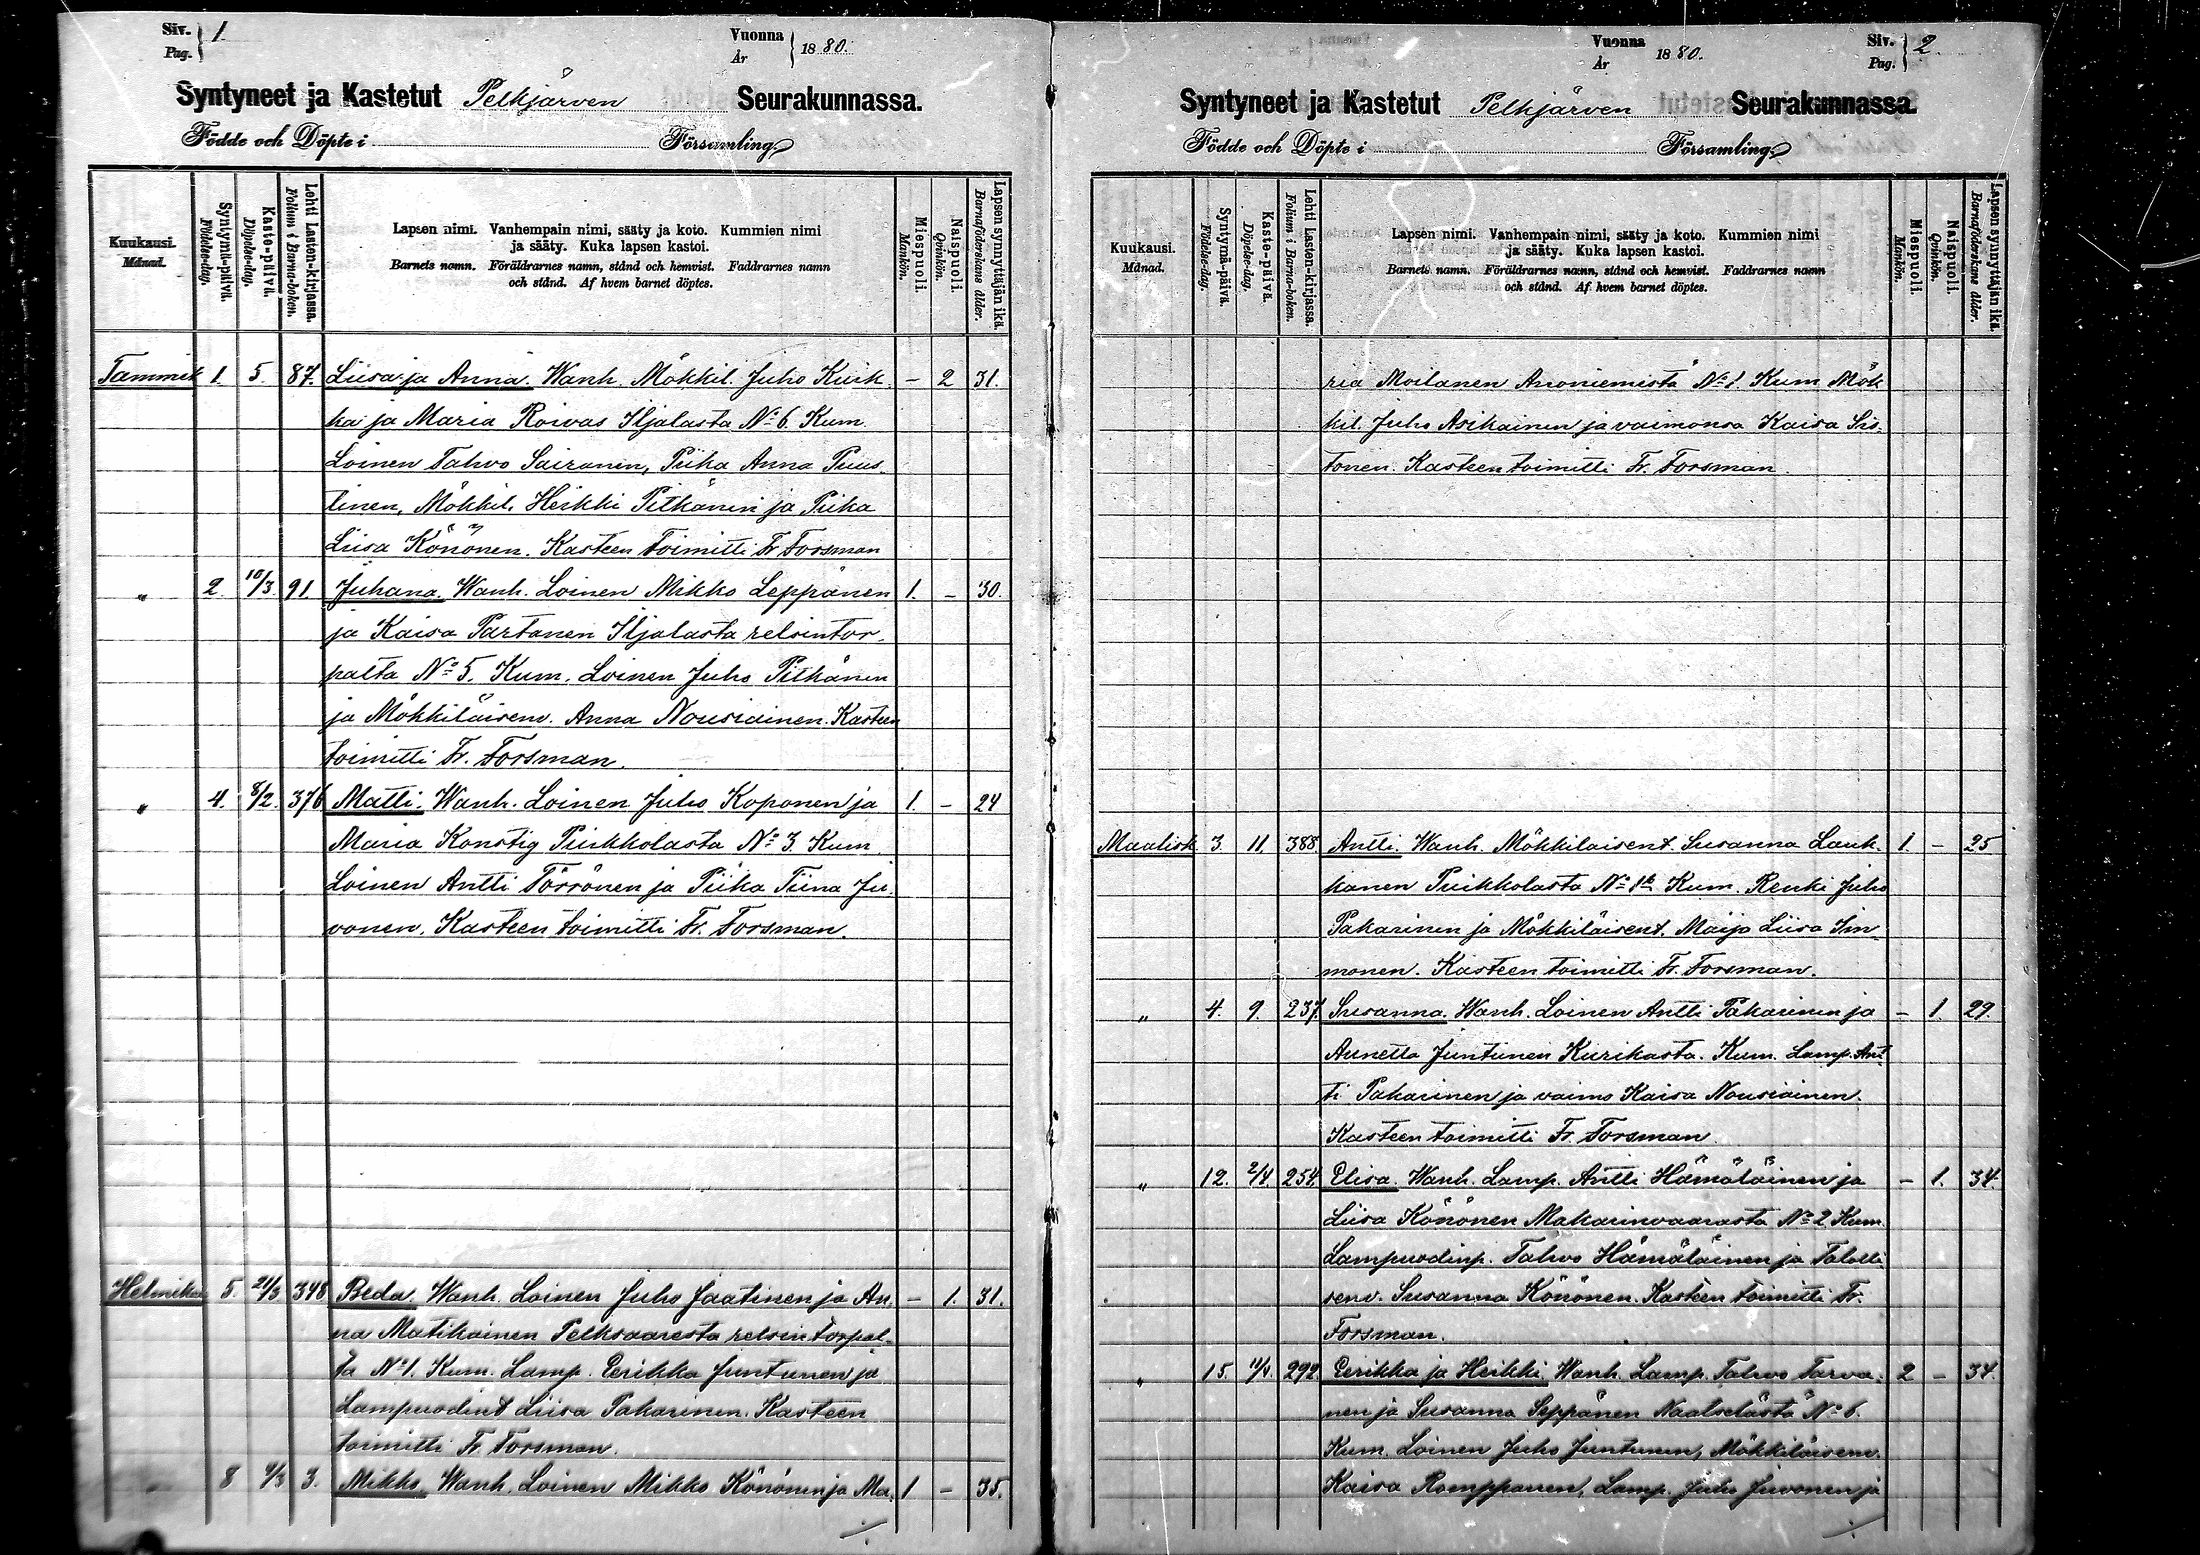 Siv. 1.
Pag.
Vuonna 1880.
År
Syntyneet ja Kastetut Pelkjärven Seurakunnassa.
Födde och Döpte i Församling.
Kuukausi. Månad.
Syntymä-päivä. Födelse-dag.
Kaste-päivä. Döpelse-dag.
Lehti Lasten-kirjassa. Folium i Barna-boken.
Lapsen nimi. Vanhempain nimi, sääty ja koto. Kummien nimi
ja sääty. Kuka lapsen kastoi.
Barnets namn. Föräldrarnes namn, stånd och hemvist. Faddrarnes namn
och stånd. Af hvem barnet döptes.
Miespuoli. Mankön.
Naispuoli. Qvinkön.
Lapsen synnyttäjän ikä. Barnaföderskans ålder.
Tammik 1. 5. 87. Liisa ja Anna. Wanh. Mökkil. Juho Kuik- – 2 31.
ka ja Maria Roivas Iljalasta No 6. Kum.
Loinen Tahvo Sairanen, Piika Anna Puus-
tinen, Mökkil. Heikki Pitkänen ja Piika
Liisa Könönen. Kasteen toimitti Fr. Forsman
" 2. 10/3 91. Juhana. Wanh. Loinen Mikko Leppänen 1. – 30.
ja Kaisa Partanen Iljalasta relsintor-
palta No 5. Kum. Loinen Juho Pitkänen
ja Mökkiläisenv. Anna Nousiainen. Kasteen
toimitti Fr. Forsman.
" 4. 8/2. 376 Matti. Wanh. Loinen Juho Koponen ja 1. – 24
Maria Konstig Puikkolasta No 3. Kum.
Loinen Antti Törrönen ja Piika Tiina Ju-
vonen. Kasteen toimitti Fr. Forsman.
Helmikuu 5. 21/3 348 Beda. Wanh. Loinen Juho Jaatinen ja An- – 1. 31.
na Matikainen Pelksaaresta relsintorpal-
ta No 1. Kum. Lamp. Eerikka Juntunen ja
Lampuodint. Liisa Pakarinen. Kasteen
toimitti Fr. Forsman.
8 9/3 3. Mikko. Wanh. Loinen Mikko Könönen ja Ma- 1 – 35.
Vuonna 1880.
År
Siv. 2.
Pag.
Syntyneet ja Kastetut Pelkjärven Seurakunnassa.
Födde och Döpte i Församling.
Kuukausi. Månad.
Syntymä-päivä. Födelse-dag.
Kaste-päivä. Döpelse-dag.
Lehti Lasten-kirjassa. Folium i Barna-boken.
Lapsen nimi. Vanhempain nimi, sääty ja koto. Kummien nimi
ja sääty. Kuka lapsen kastoi.
Barnets namn. Föräldrarnes namn, stånd och hemvist. Faddrarnes namn
och stånd. Af hvem barnet döptes.
Miespuoli. Mankön.
Naispuoli. Qvinkön.
Lapsen synnyttäjän ikä. Barnaföderskans ålder.
ria Moilanen Anoniemistä No 1. Kum. Mök
kil. Juho Asikainen ja vaimonsa Kaisa Sis-
tonen. Kasteen toimitti Fr. Forsman.
Maalisk 3. 11. 388. Antti. Wanh. Mökkiläisent. Susanna Lauk- 1. – 25
kanen Puikkolasta No 1 Kum. Renki Juho
Pakarinen ja Mökkiläisent. Maija Liisa Im-
monen. Kasteen toimitti Fr. Forsman.
" 4. 9. 237. Susanna. Wanh. Loinen Antti Pakarinen ja – 1. 29.
Annetta Juntunen Kurikasta. Kum. Lamp. Ant
ti Pakarinen ja vaimo Kaisa Nousiainen.
Kasteen toimitti Fr. Forsman.
" 12. 2/4. 254. Elisa. Wanh. Lamp. Antti Hämäläinen ja – 1. 34.
Liisa Könönen Makarinvaarasta No 2 Kum.
Lampuodinp. Tahvo Hämäläinen ja Talolli-
senv. Susanna Könönen. Kasteen toimitti Fr.
Forsman.
" 15. 11/4. 292. Eerikka ja Heikki. Wanh. Lamp. Tahvo Tarva- 2 – 34.
nen ja Susanna Seppänen Naatselästä No 6.
Kum. Loinen Juho Juntunen, Mökkiläisenv.
Kaisa Romppanen, Lamp. Juho Juvonen ja